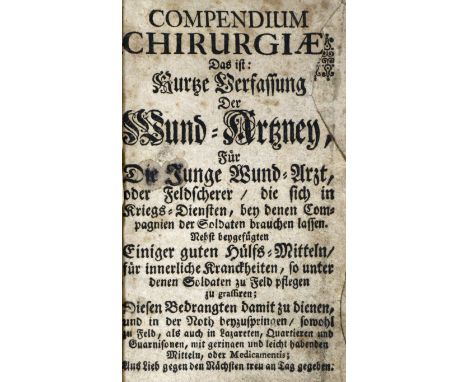 COMPENDIUM
CHIRURGIÆ
Das ist:
Kurtze Verfassung
Der
Wund-Artzney,
Für
Die Junge Wund-Arzt,
oder Feldscherer / die sich in
Kriegs-Diensten, bey denen Com-
pagnien der Soldaten brauchen lassen.
Nebst beygefügten
Einiger guten Hülfs-Mitteln /
für innerliche Kranckheiten, so unter
denen Soldaten zu Feld pflegen
zu grassiren;
Diesen Bedrangten damit zu dienen,
und in der Noth beyzuspringen / sowohl
zu Feld, als auch in Lazareten, Quartieren und
Guarnisonen, mit geringen und leicht habenden
Mitteln, oder Medicamentis;
Aus Lieb gegen den Nächsten treu an Tag gegeben.